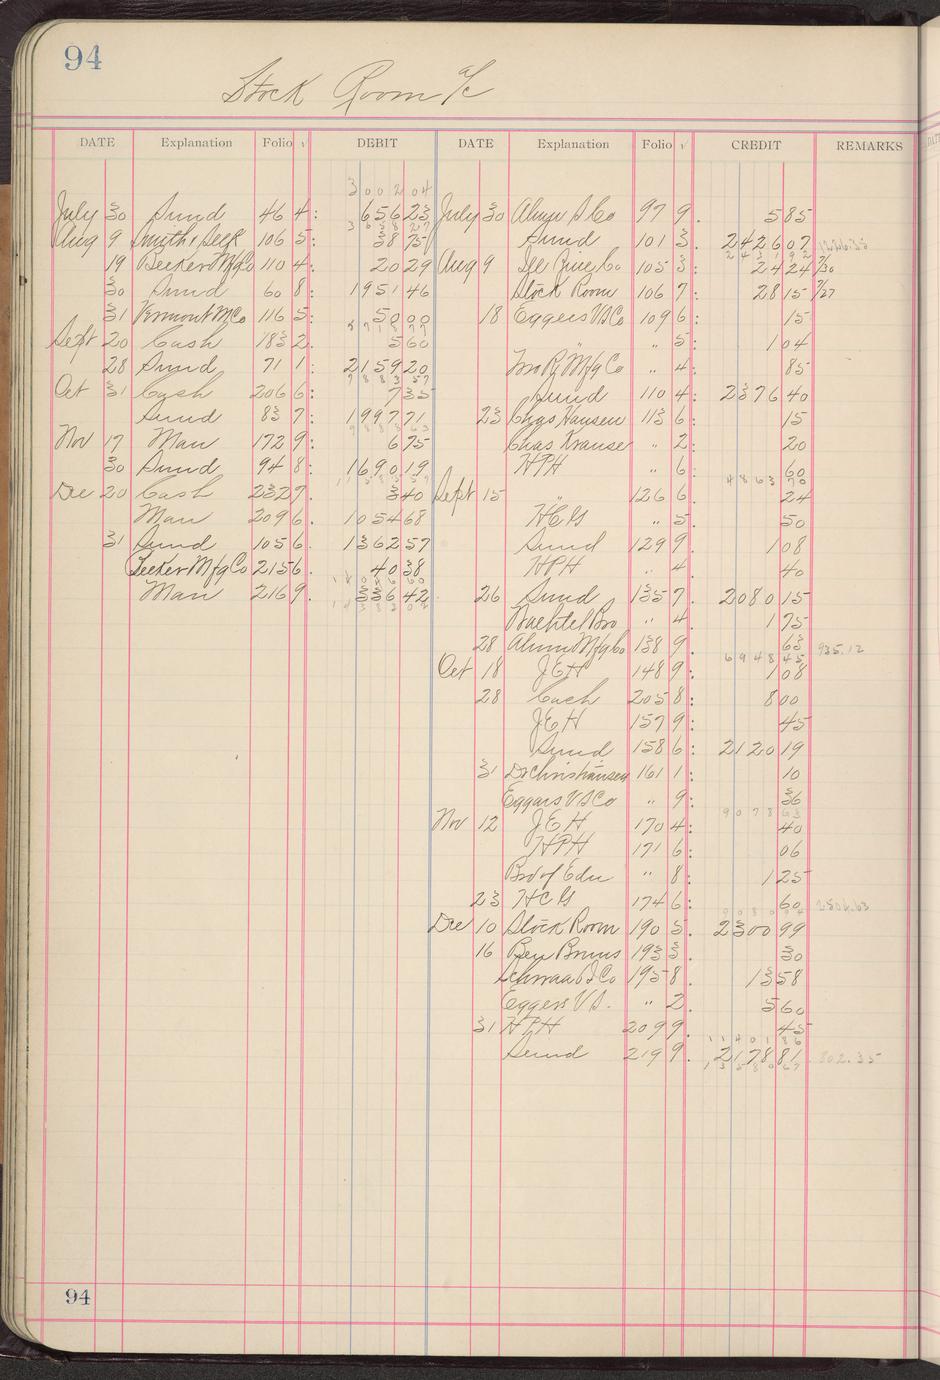 94
Stock Room a/c
DATE Explanation Folio √ DEBIT DATE Explanation Folio √ CREDIT REMARKS
3002 04
July 30 Sund 46 4: 656 23 July 30 97 9. 5 85
3658 27
Aug 9 106 5: 38 75 Sund 101 3. 2426 07
2431 92
19 Becker Mfg Co 110 4: 20 29 Aug 9 105 3: 24 24 7/30
30 Sund 60 8: 1951 46 Stock Room 106 7: 28 15 7/27
31 Vermont M Co 116 5: 50 00 18 Eggers V S Co 109 6: 15
Sept 20 Cash 183 2. 5 60 " 5: 1 04
28 Sund 71 1: 2159 20 Mfg Co " 4: 85
Oct 31 Cash 206 6: 7 35 Sund 110 4: 2376 40
Sund 83 7: 1997 71 23 Chas Hansen 113 6: 15
Nov 17 Man 172 9: 6 75 Chas Krause " 2: 20
30 Sund 94 8: 1690 19 HPH " 6: 60
4863 70
Dec 20 Cash 232 7. 3 40 Sept 15 " 126 6. 24
Man 209 6. 1054 68 H C G " 5. 50
31 Sund 105 6. 1362 57 Sund 129 9. 1 08
Becker Mfg Co 215 6. 40 38 HPH " 4. 40
Man 216 9. 336 42 26 Sund 135 7. 2080 15
Bachtel Bro " 4. 1 75
28 Alum Mfg Co 138 9. 63 935.12
6948 45
Oct 18 J E H 148 9: 1 08
28 Cash 205 8: 8 00
J E H 157 9: 45
Sund 158 6: 2120 19
31 Dr Christiansen 161 1: 10
Eggers V S Co " 9: 36
9078 63
Nov 12 J E H 170 4: 40
HPH 171 6: 06
Bd of Edu " 8: 1 25
23 H C G 174 6: 60
9080 94
Dec 10 Stock Room 190 5. 2300 99
16 Ben Bruns 193 3. 30
Schwaab S Co 195 8. 13 58
Eggers V S. " 2. 5 60
31 HPH 209 9. 45
11401 86
Sund 219 9. 2178 81 802.35
13580 67
94